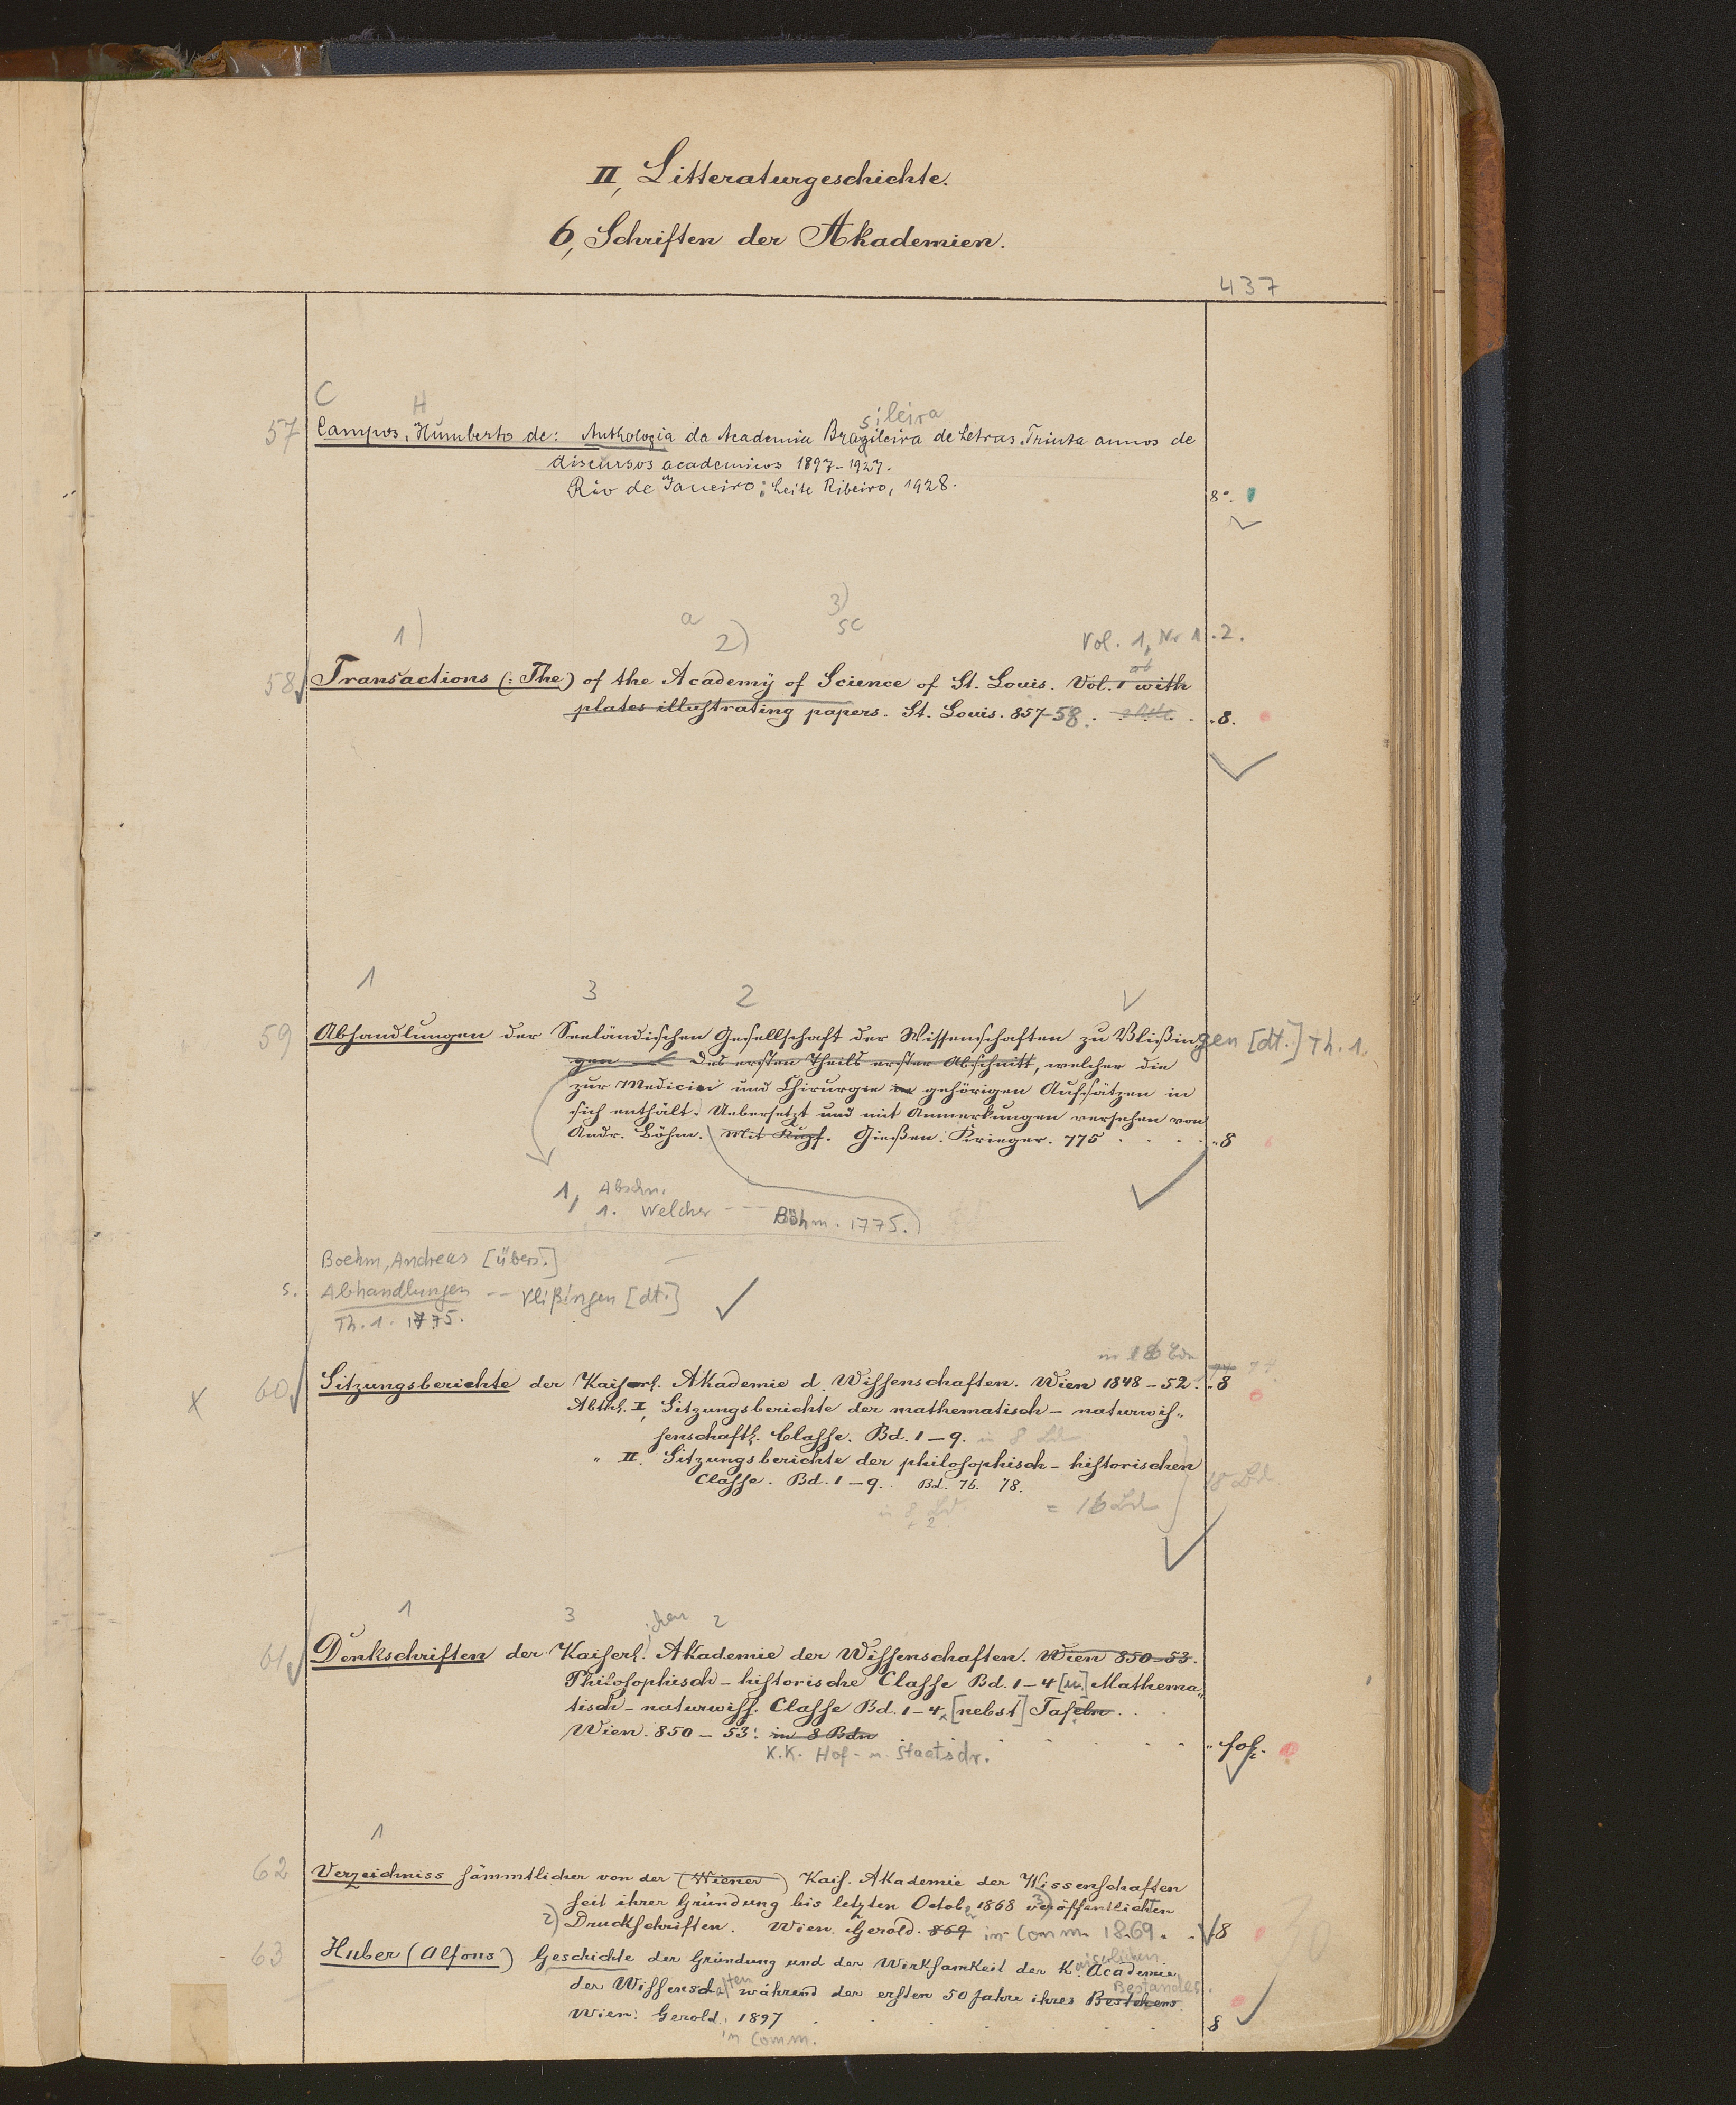 II, Litteraturgeschichte.
6, Schriften der Akademien.
437
C H sileira
57 Campos, Humberto de: Anthologia da Academia Brazileira de Letras. Triuta annos de
discursos academicos 1897-1927.
Rio de Janeiro: Leite Ribeiro, 1928.
8°.
1) a 2) 3) sc Vol. 1, Nr 1.2.
58 Transactions (: The) of the Academÿ of Science of St. Louis. Vol. 1 with
plates illustrating papers. St. Louis. 857-58. 8.
1 3 2
59 Abhandlungen der Seeländischen Gesellschaft der Wissenschaften zu Vlißingen [dt.] Th. 1.
gen Des ersten Theils erster Abschnitt, welcher die
zur Medicin und Chirurgie gehörigen Aufsätzen in
sich enthält. Uebersetzt und mit Anmerkungen versehen von
Andr. Böhm. Mit Kupf. Gießen. Krieger. 775 8
1, Abschn.
1. Welcher -- Böhm. 1775.)
Boehm, Andreas [übers.]
s. Abhandlungen -- Vlißingen [dt.]
Th. 1. 1775.
in 16 Bdn
x 60 Sitzungsberichte der Kaiserl. Akademie d. Wissenschaften. Wien 1848-52. 8
Abthl. I, Sitzungsberichte der mathematisch-naturwis„
senschaftl. Classe. Bd. 1-9. in 8 Bd
" II. Sitzungsberichte der philosophisch-historischen
Classe. Bd. 1-9. Bd. 76. 78.
18 Bd.
in 8 Bd. + 2 = 16 Bd
1 3 ichen 2
61 Denkschriften der Kaiserl. Akademie der Wissenschaften. Wien 850-53.
Philosophisch-historische Classe Bd. 1-4 [u.] Mathema„
tisch-naturwiss. Classe Bd. 1-4, [nebst] Tafeln.
Wien. 850-53. in 8 Bdn fol.
K.K. Hof- u. Staatsdr.
1
62 Verzeichniss sämmtlicher von der (Wiener) Kais. Akademie der Wissenschaften
seit ihrer Gründung bis letzten Octob. 1868 3) veröffentlichten
2) Druckschriften. Wien. Gerold. 869 in Comm. 1869. 8
63 Huber (Alfons) Geschichte der Gründung und der Wirksamkeit der K. aiserlichen Academie
der Wissenschaften während der ersten 50 Jahre ihres Bestehens. Bestandes.
Wien: Gerold. 1897 8
in Comm.